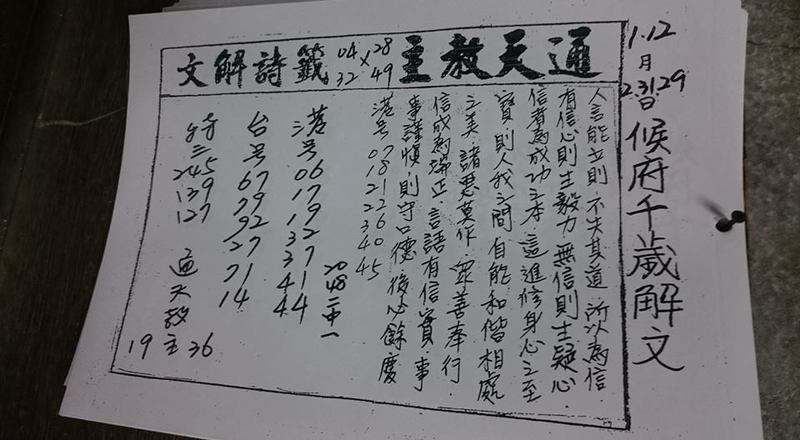 1.12月2.31.29日
候府千歲解文
通天教主 04×28 32 49 籤詩解文
人言能立則 不失其道 所以為信
有信心則生毅力 無信則生疑心
信者為成功之本 這進修身心之至
寶 則人我之間 自能和偕相處
之美 諸惡莫作 眾善奉行
信成為端正 言語有信實 事
事謹慎 則守口德 後心餘慶
港号 07 18 21 22 26 30 40 45
2048二中一
港号 06 17 19 32 37 41 44
台号 67 79 92 27 71 14
特三 245 139 127
通天教主
19 36